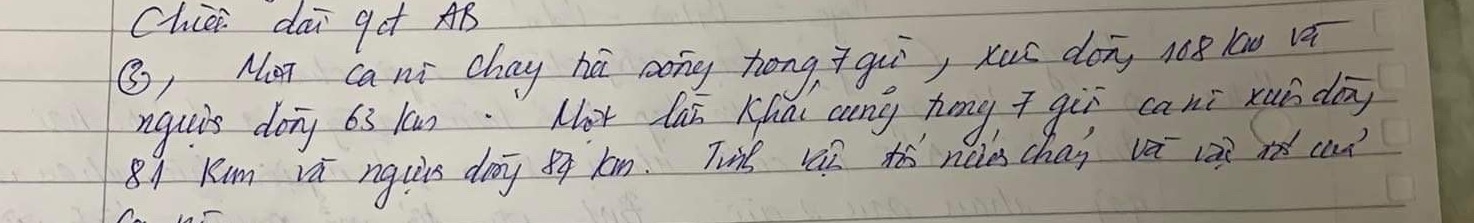 Chiều dài qđ AB
③, Một ca nô chạy trên sông trong 7 giờ, xuôi dòng 108 km và
ngược dòng 63 km. Một lần khác cũng trong 7 giờ ca nô xuôi dòng
81 km và ngược dòng 84 km. Tính vận tốc nước chảy và vận tốc của
Ca nô